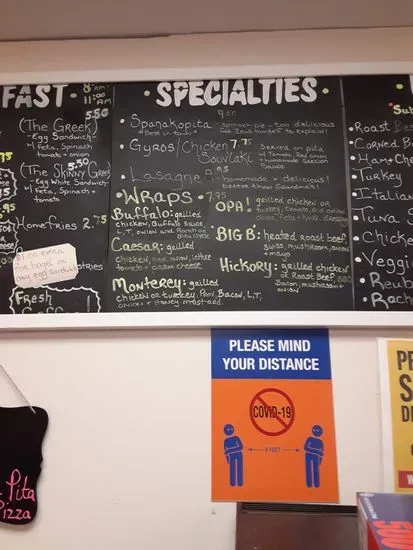 FAST
8 AM-
11:00 AM
5.50
(The Greek)
-Egg Sandwich-
w/Feta, Spinach
tomato + onion
5.50
(The SKINNY Greek)
-Egg White Sandwich-
w/Feta, Spinach
HomeFries 2.75
on
any egg sandwich
Fresh
• SPECIALTIES •
9.50
• Spanakopita - spinach pie - too delicious
*Best in town* for Zeus himself to explain!
• Gyros/Chicken 7.75 Served on pita
Souvlaki w/ Tomato, Red onion
+ homemade Greek
Sauce
• Lasagne 9.95 Homemade + delicious!
better than Grandma's!
• Wraps • 7.95
Buffalo: grilled
chicken, Buffalo Sauce,
L,T, onion and Ranch or
Caesar: grilled
chicken, Red onion, lettuce
tomato + parm cheese
Monterey: grilled
chicken or turkey, Prov, Bacon, L,T,
onion + Honey mustard
OPA!: grilled chicken or
turkey, tomato, red onion
BIG B: heated roast beef,
swiss, mushroom, onion
+ mayo
Hickory: grilled chicken
or Roast Beef, BBQ
Bacon, mushroom +
onion
Sub
Roast B
Corned B
Ham + Che
Turkey
Italian
Tuna
Chicke
Veggi
Reub
Rach
PLEASE MIND
YOUR DISTANCE
COVID-19
6 FEET
Pita
Pizza
P
S
D
500